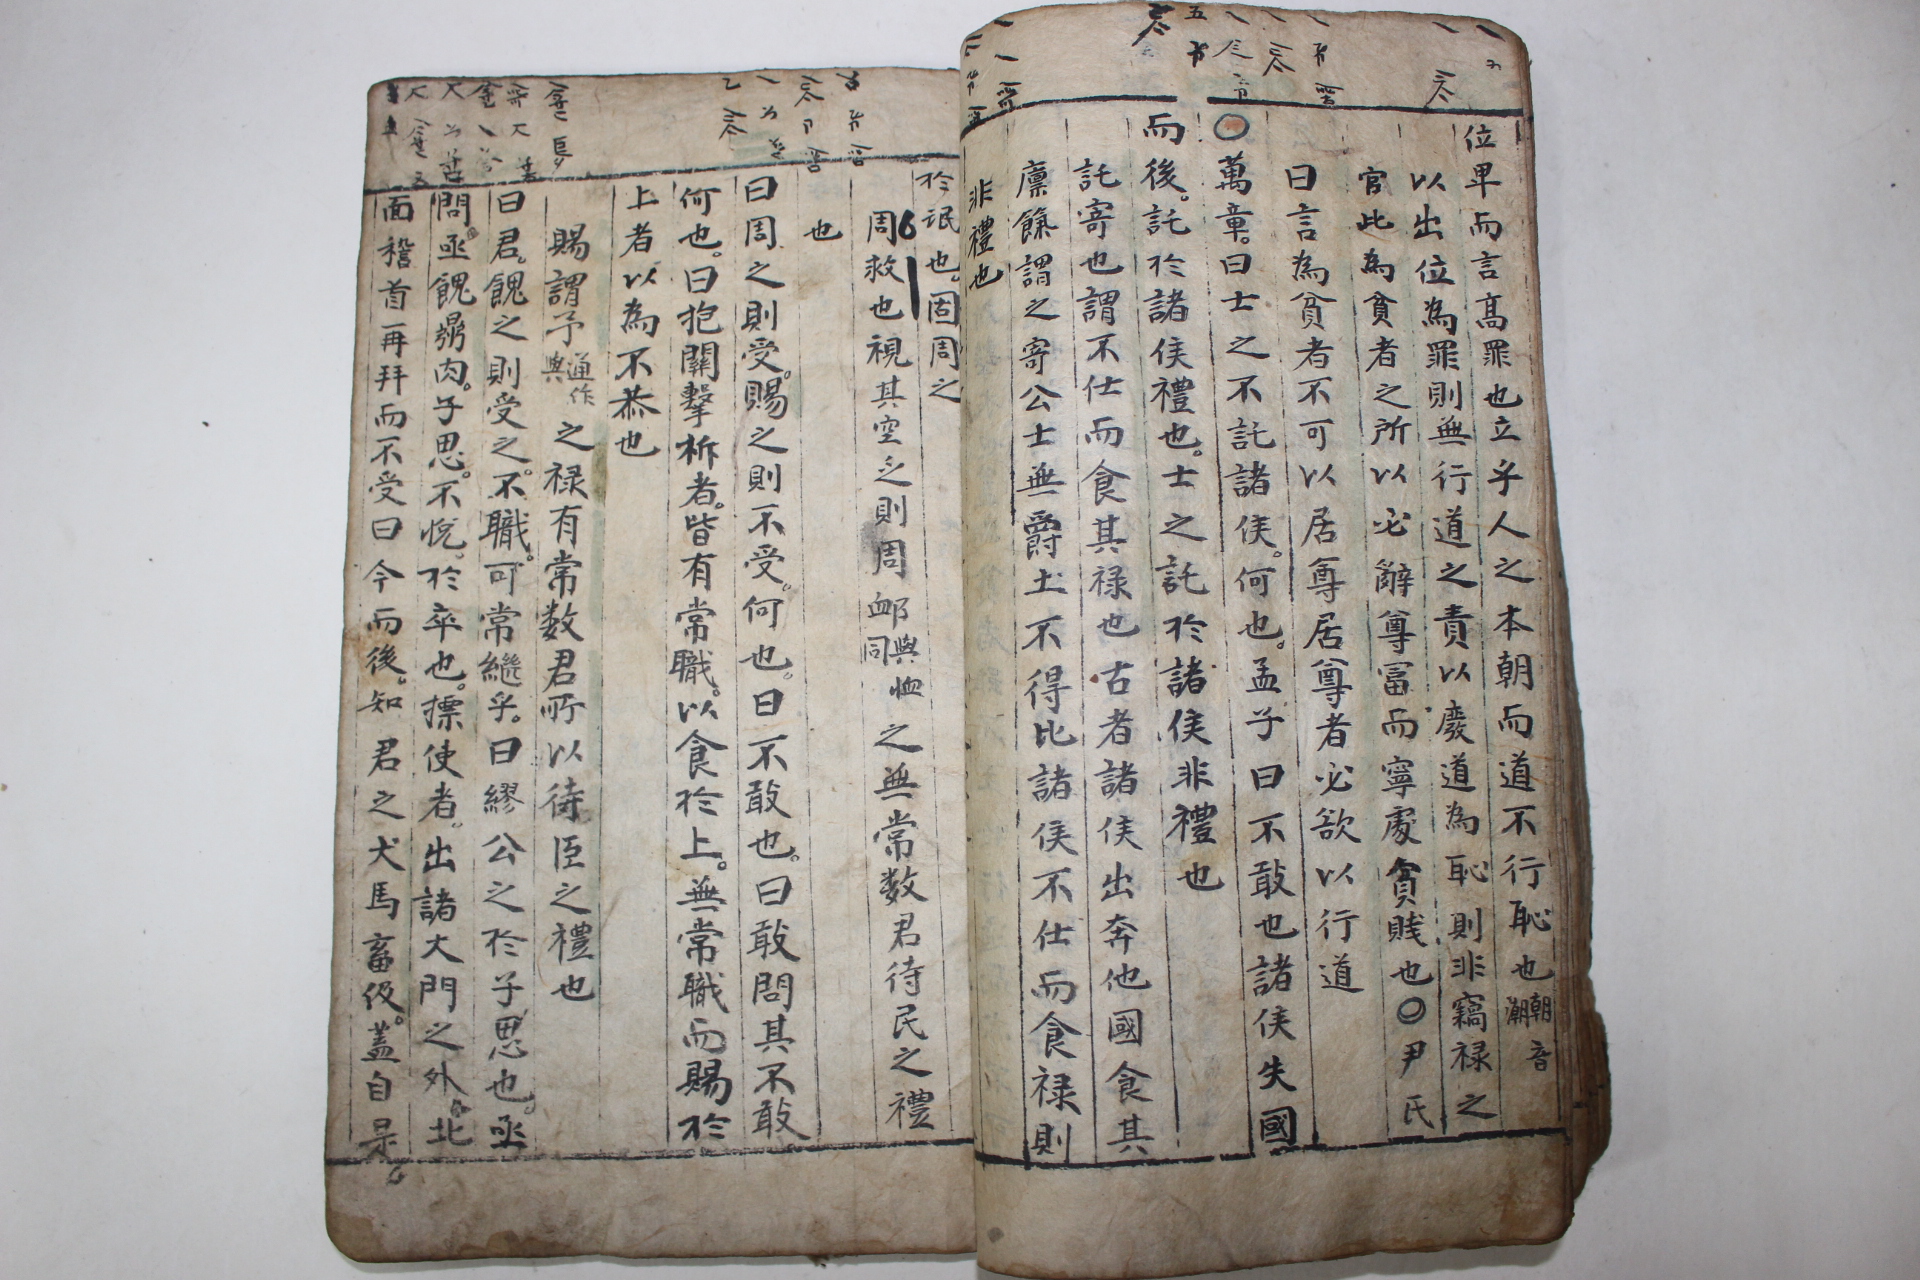 位卑而言高罪也立乎人之本朝而道不行恥也朝音潮
以出位為罪則無行道之責以廢道為恥則非竊禄之
官此為貧者之所以必辭尊富而寧處貧賎也○尹氏
曰言為貧者不可以居尊居尊者必欲以行道
○萬章曰士之不託諸侯何也孟子曰不敢也諸侯失國
而後託於諸侯禮也士之託於諸侯非禮也
託寄也謂不仕而食其禄也古者諸侯出奔他國食其
廪餼謂之寄公士無爵土不得比諸侯不仕而食禄則
非禮也
於氓也固周之
周救也視其空乏則周䘏與恤同之無常数君待民之禮
也
曰周之則受賜之則不受何也曰不敢也曰敢問其不敢
何也曰抱關擊柝者皆有常職以食於上無常職而賜於
上者以為不恭也
賜謂予通作與之禄有常数君所以待臣之禮也
曰君餽之則受之不職可常繼乎曰繆公之於子思也亟
問亟餽鼎肉子思不悅於卒也摽使者出諸大門之外北
面稽首再拜而不受曰今而後知君之犬馬畜伋蓋自是